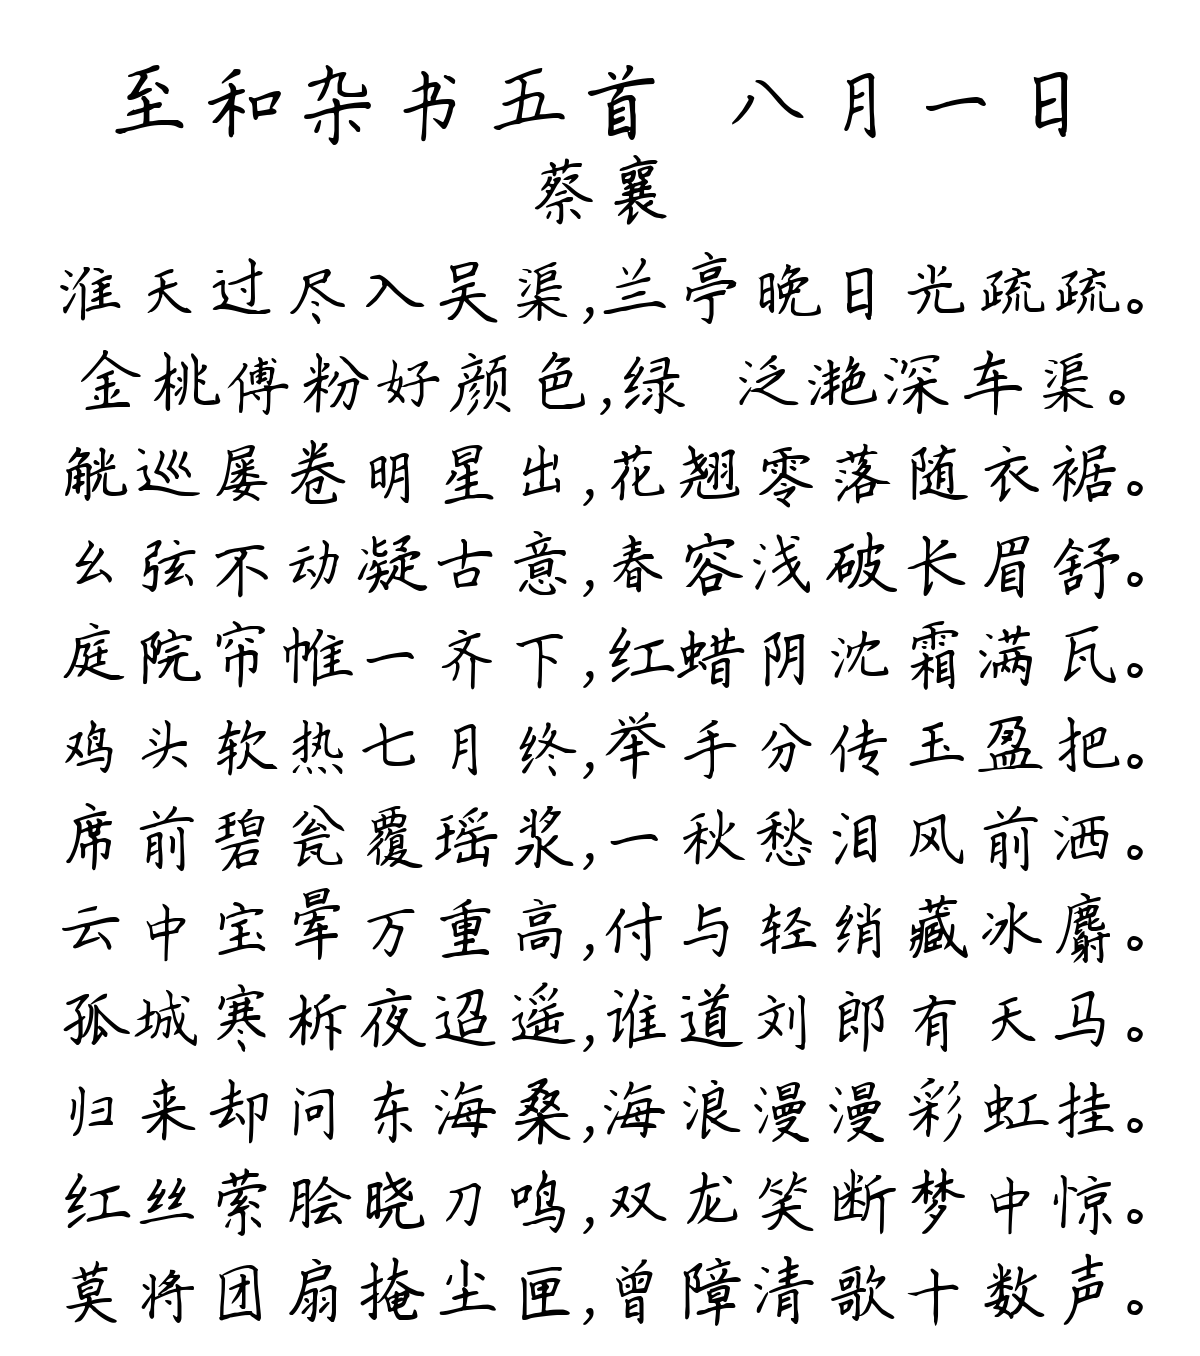 至和杂书五首 八月一日
蔡襄
淮天过尽入吴渠,兰亭晚日光疏疏。
金桃傅粉好颜色,绿 泛滟深车渠。
觥巡屡卷明星出,花翘零落随衣裾。
幺弦不动凝古意,春容浅破长眉舒。
庭院帘帷一齐下,红蜡阴沈霜满瓦。
鸡头软热七月终,举手分传玉盈把。
席前碧瓮覆瑶浆,一秋愁泪风前洒。
云中宝晕万重高,付与轻绡藏冰麝。
孤城寒柝夜迢遥,谁道刘郎有天马。
归来却问东海桑,海浪漫漫彩虹挂。
红丝萦脍晓刀鸣,双龙笑断梦中惊。
莫将团扇掩尘匣,曾障清歌十数声。